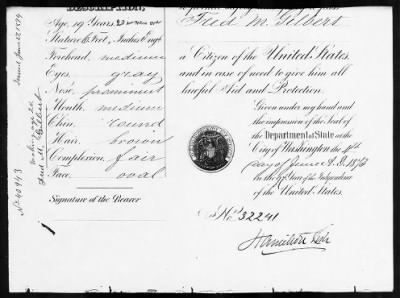 DESCRIPTION.
Age, 19 Years,
Stature 6 Feet, Inches Engl
Forehead, medium
Eyes, gray
Nose, prominent
Mouth, medium
Chin, round
Hair, brown
Complexion, fair
Face, oval
Signature of the Bearer
Fred M. Gilbert
a Citizen of the United States,
and in case of need to give him all
lawful Aid and Protection.
Given under my hand and
the impression of the Seal of
the Department of State at the
City of Washington the
day of June A.D. 1873
in the 97 Year of the Independence
of the United States.
No. 32241
Hamilton Fish
No 40943